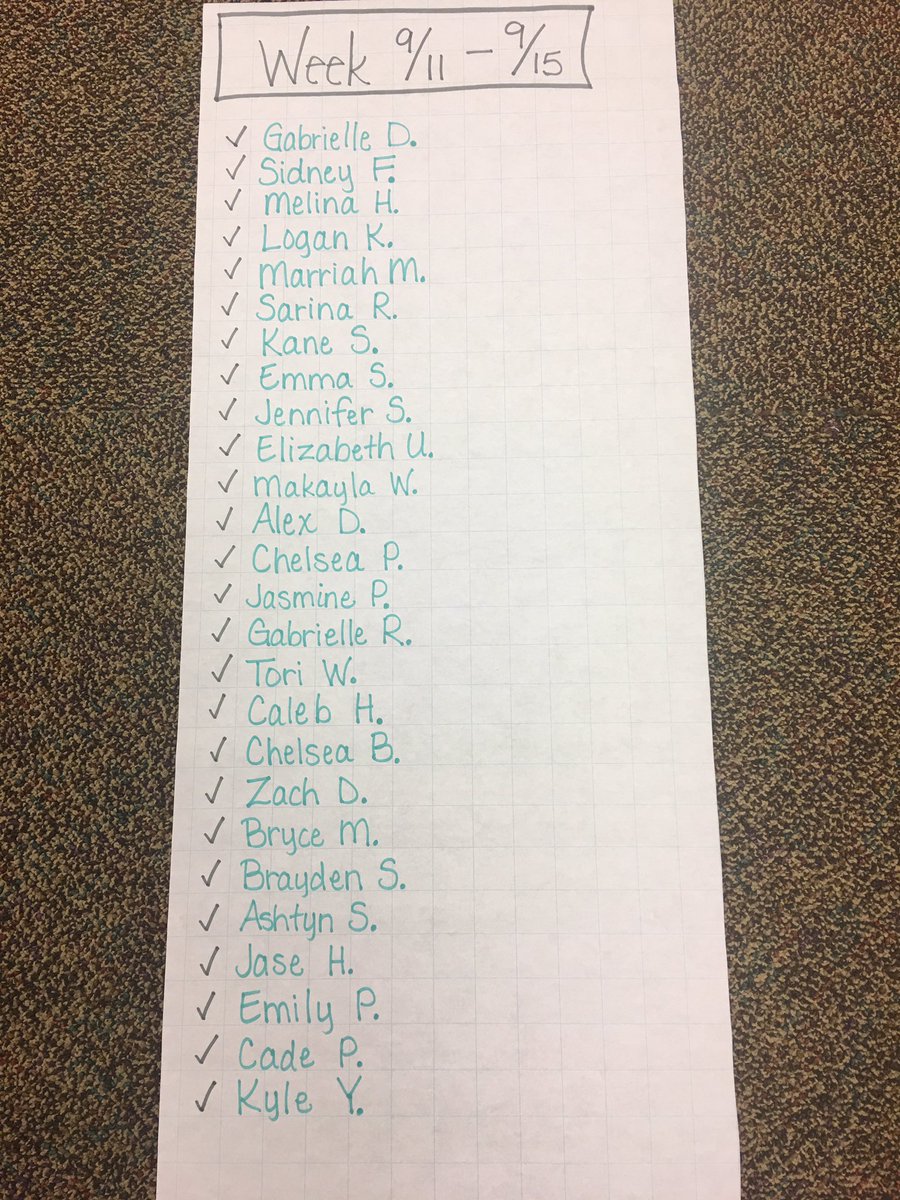 Week 9/11 - 9/15
✓ Gabrielle D.
✓ Sidney F.
✓ Melina H.
✓ Logan K.
✓ Marriah M.
✓ Sarina R.
✓ Kane S.
✓ Emma S.
✓ Jennifer S.
✓ Elizabeth U.
✓ Makayla W.
✓ Alex D.
✓ Chelsea P.
✓ Jasmine P.
✓ Gabrielle R.
✓ Tori W.
✓ Caleb H.
✓ Chelsea B.
✓ Zach D.
✓ Bryce M.
✓ Brayden S.
✓ Ashtyn S.
✓ Jase H.
✓ Emily P.
✓ Cade P.
✓ Kyle Y.